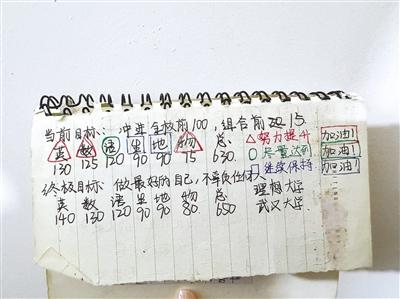 当前目标: 冲进全校前100, 组合前15.
英 数 语 生 地 物 总 △努力提升 加油!
130 125 120 90 90 75 630. ○尽量达到 加油!
□继续保持 加油!
终极目标 做最好的自己,不辜负任何人
英 数 语 生 地 物 总 理想大学
140 130 120 90 90 80. 650 武汉大学.